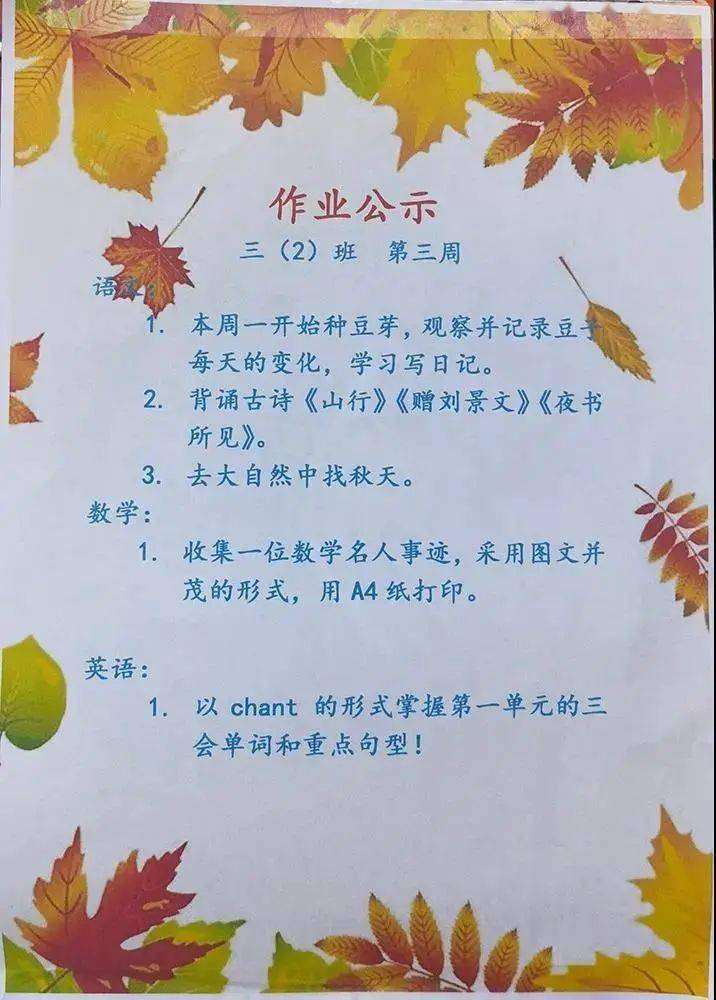 作业公示
三（2）班 第三周
语文：
1. 本周一开始种豆芽，观察并记录豆子
每天的变化，学习写日记。
2. 背诵古诗《山行》《赠刘景文》《夜书
所见》。
3. 去大自然中找秋天。
数学：
1. 收集一位数学名人事迹，采用图文并
茂的形式，用 A4 纸打印。
英语：
1. 以 chant 的形式掌握第一单元的三
会单词和重点句型！